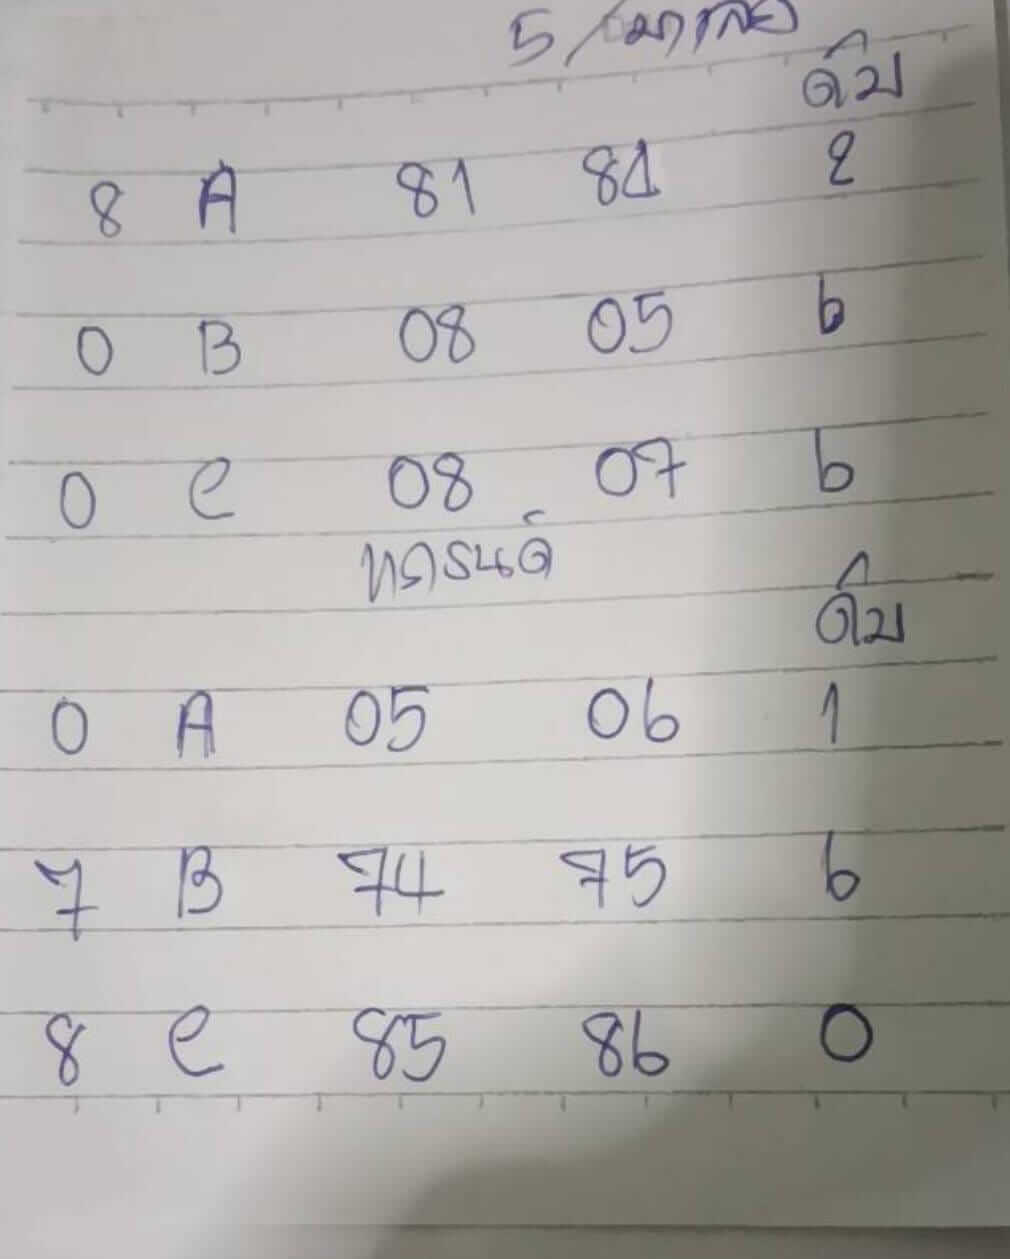 5/มาเลย์
ดิบ
8 A 81 81 2
0 B 08 05 6
0 C 08 07 6
ดิบ
0 A 05 06 1
7 B 74 75 6
8 C 85 86 0